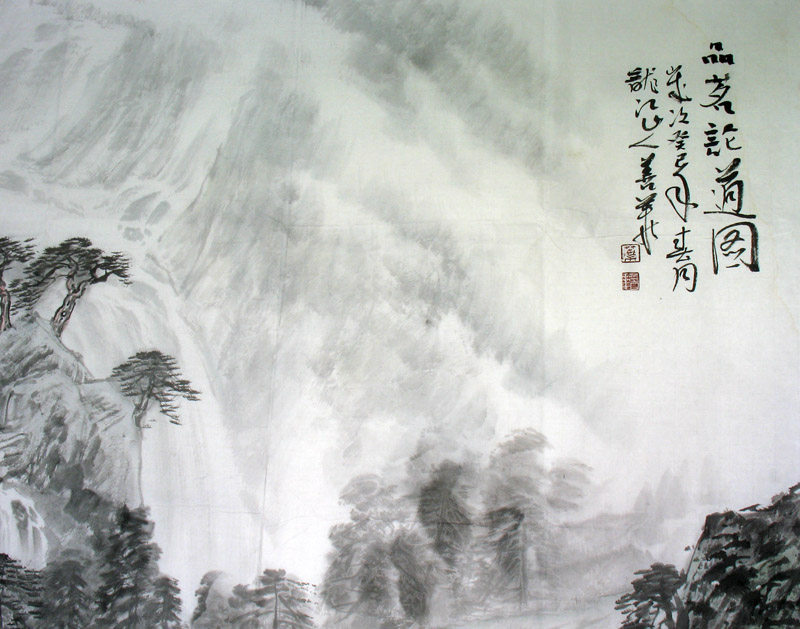 品茗論道图
歲次癸巳年春月
龍江山人善華